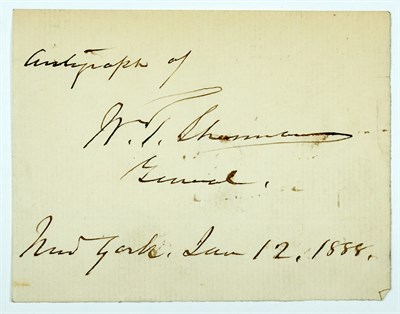 Autograph of
W. T. Sherman
General.
New York. Jan 12, 1888.